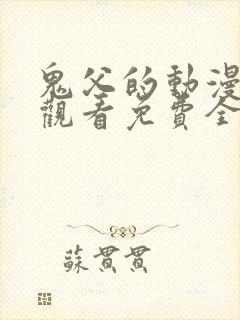 鬼父的動漫
觀看免費全
蘇貫貫